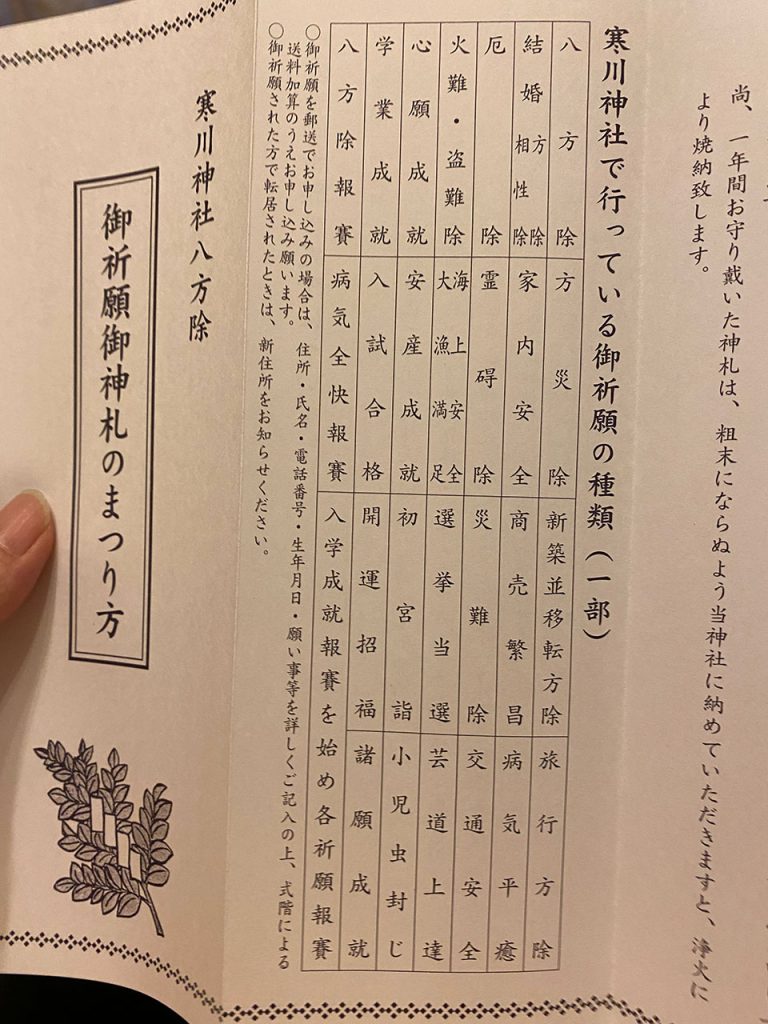 尚、一年間お守り戴いた神札は、粗末にならぬよう当神社に納めていただきますと、浄火に
より焼納致します。
寒川神社で行っている御祈願の種類（一部）
八方除 方災除 新築並移転方除 旅行方除
結婚 方除 相性除 家内安全 商売繁昌 病気平癒
厄除 霊碍除 災難除 交通安全
火難・盗難除 海上安全 大漁満足 選挙当選 芸道上達
心願成就 安産成就 初宮詣 小児虫封じ
学業成就 入試合格 開運招福 諸願成就
八方除報賽 病気全快報賽 入学成就報賽を始め各祈願報賽
〇御祈願を郵送でお申し込みの場合は、住所・氏名・電話番号・生年月日・願い事等を詳しくご記入の上、式階による
送料加算のうえお申し込み願います。
〇御祈願された方で転居されたときは、新住所をお知らせください。
寒川神社八方除
御祈願御神札のまつり方